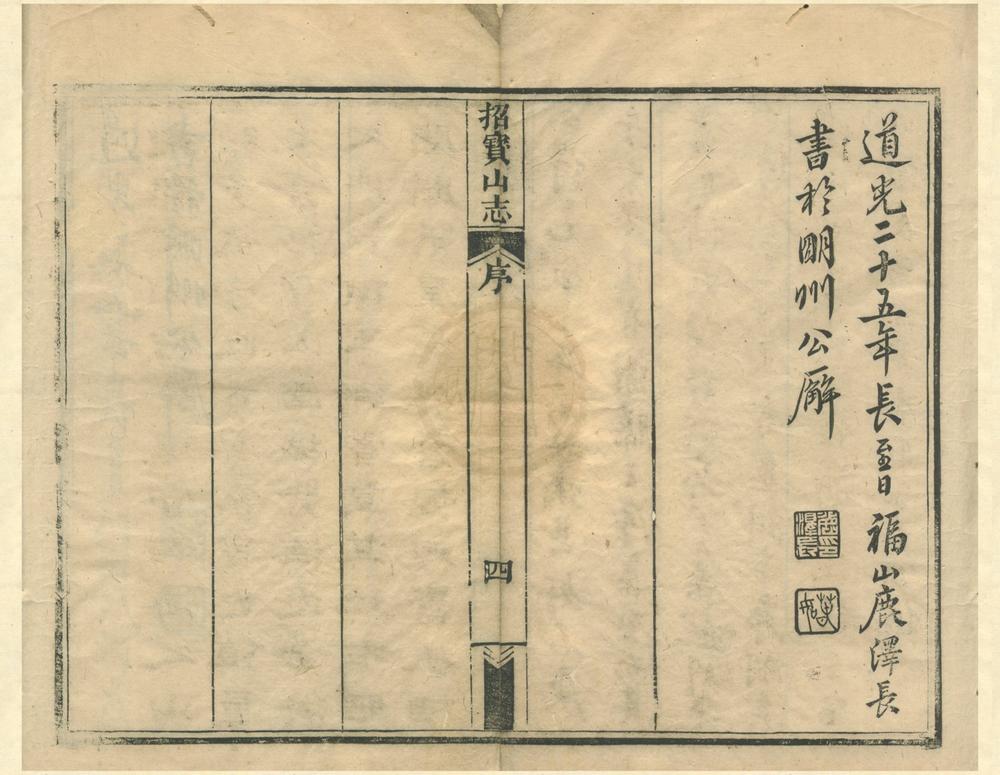 道光二十五年長至日福山鹿澤長
書於明州公廨
招寶山志
序
四